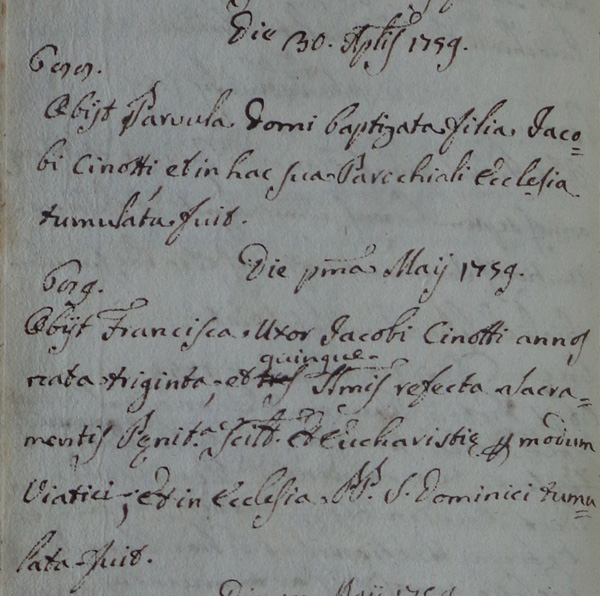 Die 30. Aplis 1759.
Obijt Parvula domi baptizata filia Jaco=
bi Cinotti, et in hac sua Parochiali Ecclesia
tumulata fuit.
Die pma Maij 1759.
Obijt Francisca Uxor Jacobi Cinotti annos
nata triginta, et
quinque
tres SSmis refecta Sacra=
mentis Pęnit.ae scilt. et Eucharistię p modum
Viatici; et in Ecclesia PP. S. Dominici tumu=
lata fuit.
Maij 1759